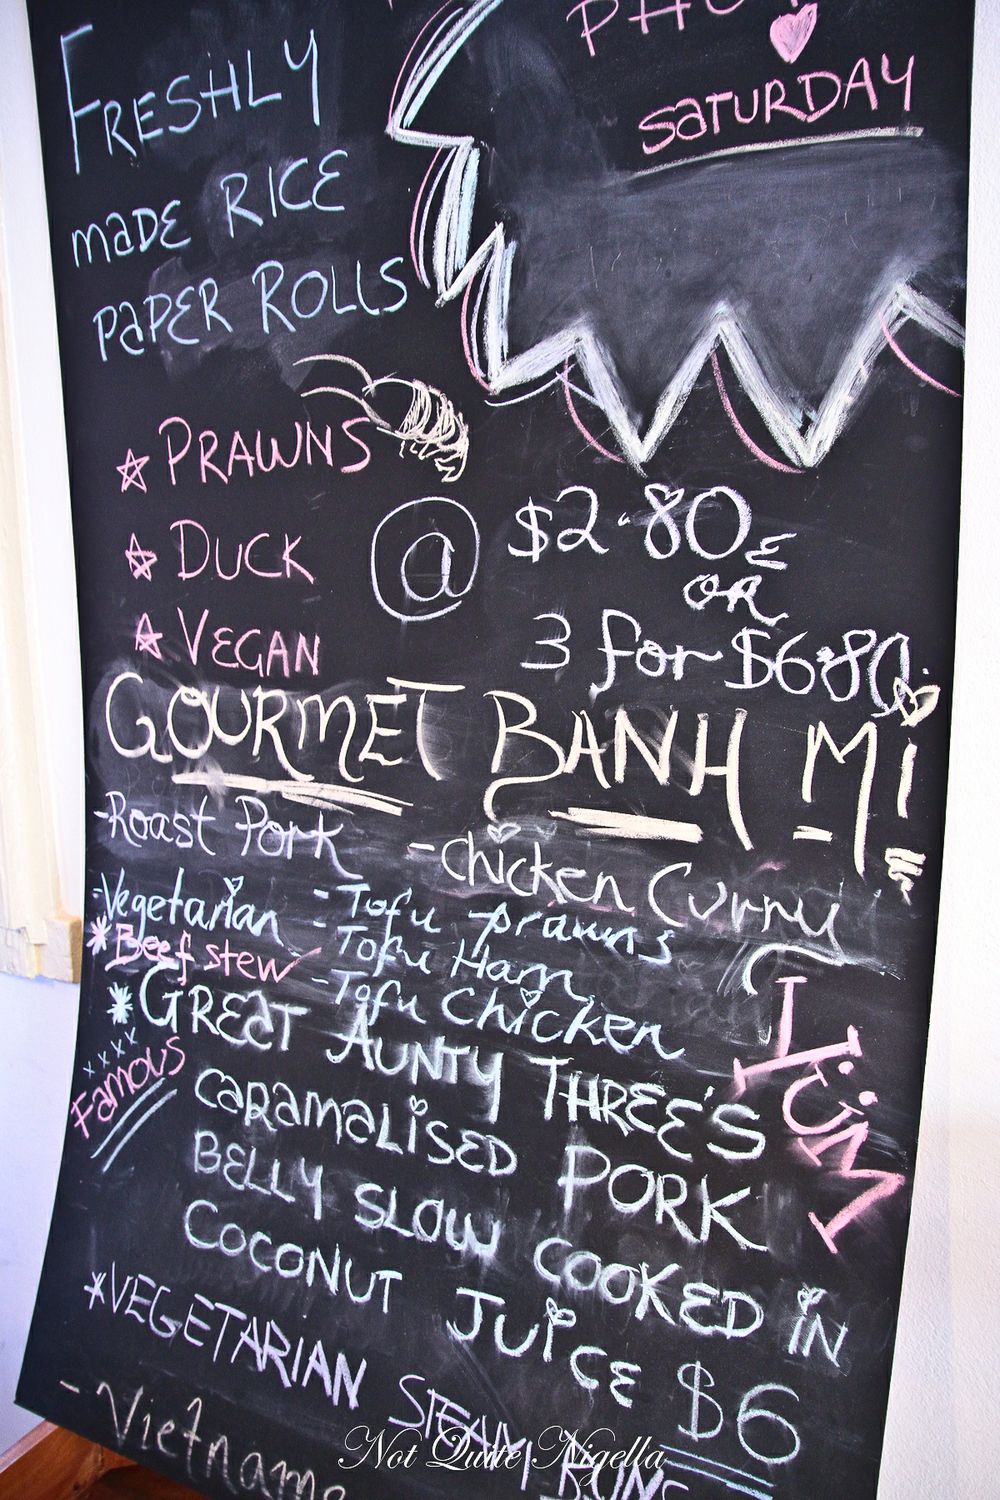 FRESHLY
MADE RICE
PAPER ROLLS
SATURDAY
PRAWNS
DUCK
VEGAN
@
$2.80 E
OR
3 for $6.80
GOURMET BANH Mi
-Roast Pork
-Chicken Curry
-Vegetarian
-Tofu prawns
*Beef stew
-Tofu Ham
-Tofu Chicken
*GREAT AUNTY THREE'S
xxxx
Famous
CARAMALISED PORK
BELLY SLOW COOKED IN
COCONUT JUICE $6
YÜM
*VEGETARIAN STEAM BUNS
-Vietname
Not Quite Nigella